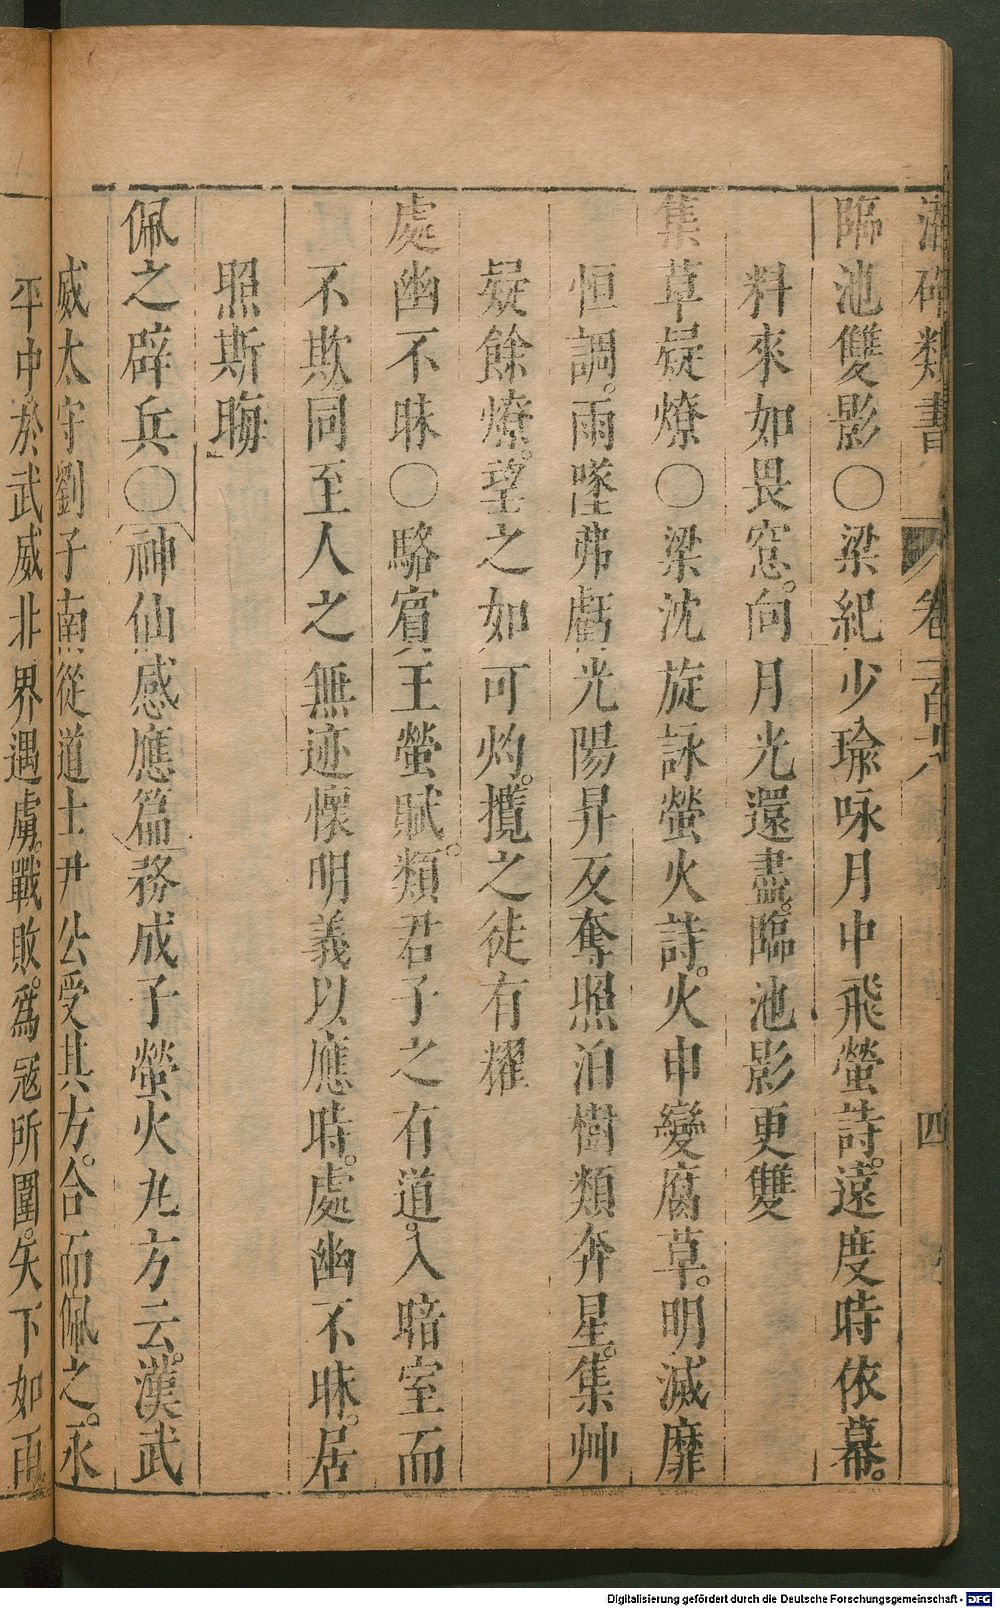 潛確類書 卷一百十八 四
臨池雙影〇梁紀少瑜咏月中飛螢詩。遠度時依幕。
料來如畏窓。向月光還盡。臨池影更雙
集草疑燎〇梁沈旋詠螢火詩。火中變腐草。明滅靡
恒調。雨墜弗虧光陽昇反奪照泊樹類奔星。集艸
疑餘燎。望之如可灼。攬之徒有耀
處幽不昧〇駱賓王螢賦。類君子之有道。入暗室而
不欺。同至人之無迹懷明義以應時。處幽不昧。居
照斯晦
佩之辟兵〇神仙感應篇務成子螢火丸方云。漢武
威太守劉子南從道士尹公受其方。合而佩之。永
平中於武威非界遇虜。戰敗。爲寇所圍。矢下如雨
Digitalisierung gefördert durch die Deutsche Forschungsgemeinschaft - DFG